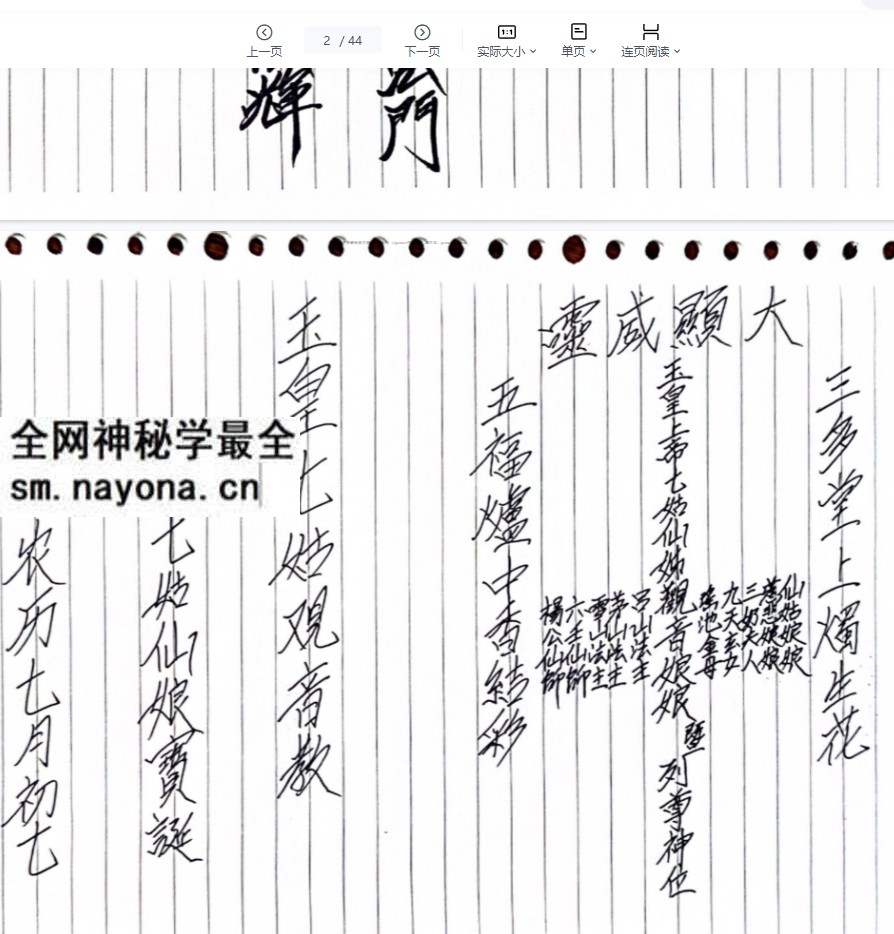 上一页
2 / 44
下一页
实际大小
单页
连页阅读
門
輝
大顯威靈
三多堂上燭生花
仙姑娘娘
慈悲娘娘
三奶夫人
九天玄女
瑤池金母
玉皇上帝七姑仙姊觀音娘娘暨列尊神位
呂山法主
茅山法主
雪山法主
六壬仙師
楊公仙師
五福爐中香結彩
玉皇七姑观音教
七姑仙娘寶誕
农历七月初七
全网神秘学最全
sm.nayona.cn